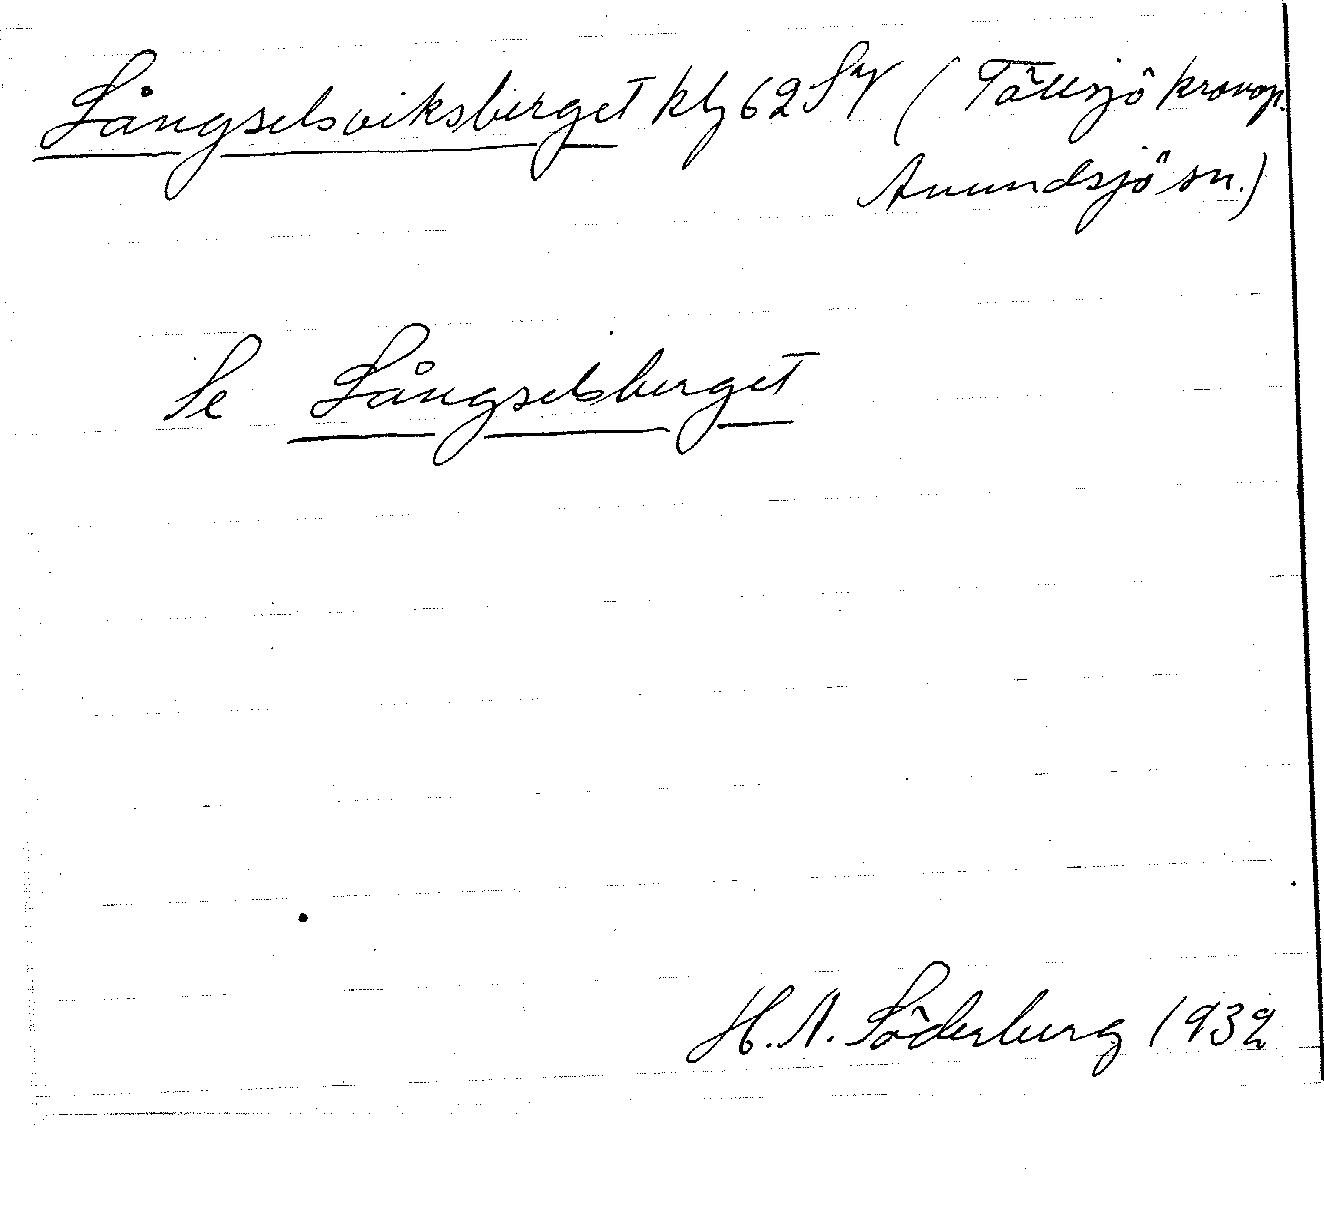 Långselsviksberget kbl 62 SY (Tällsjö kronop.
Anundsjö sn.)
Se Långselsberget
H. A. Söderberg 1932